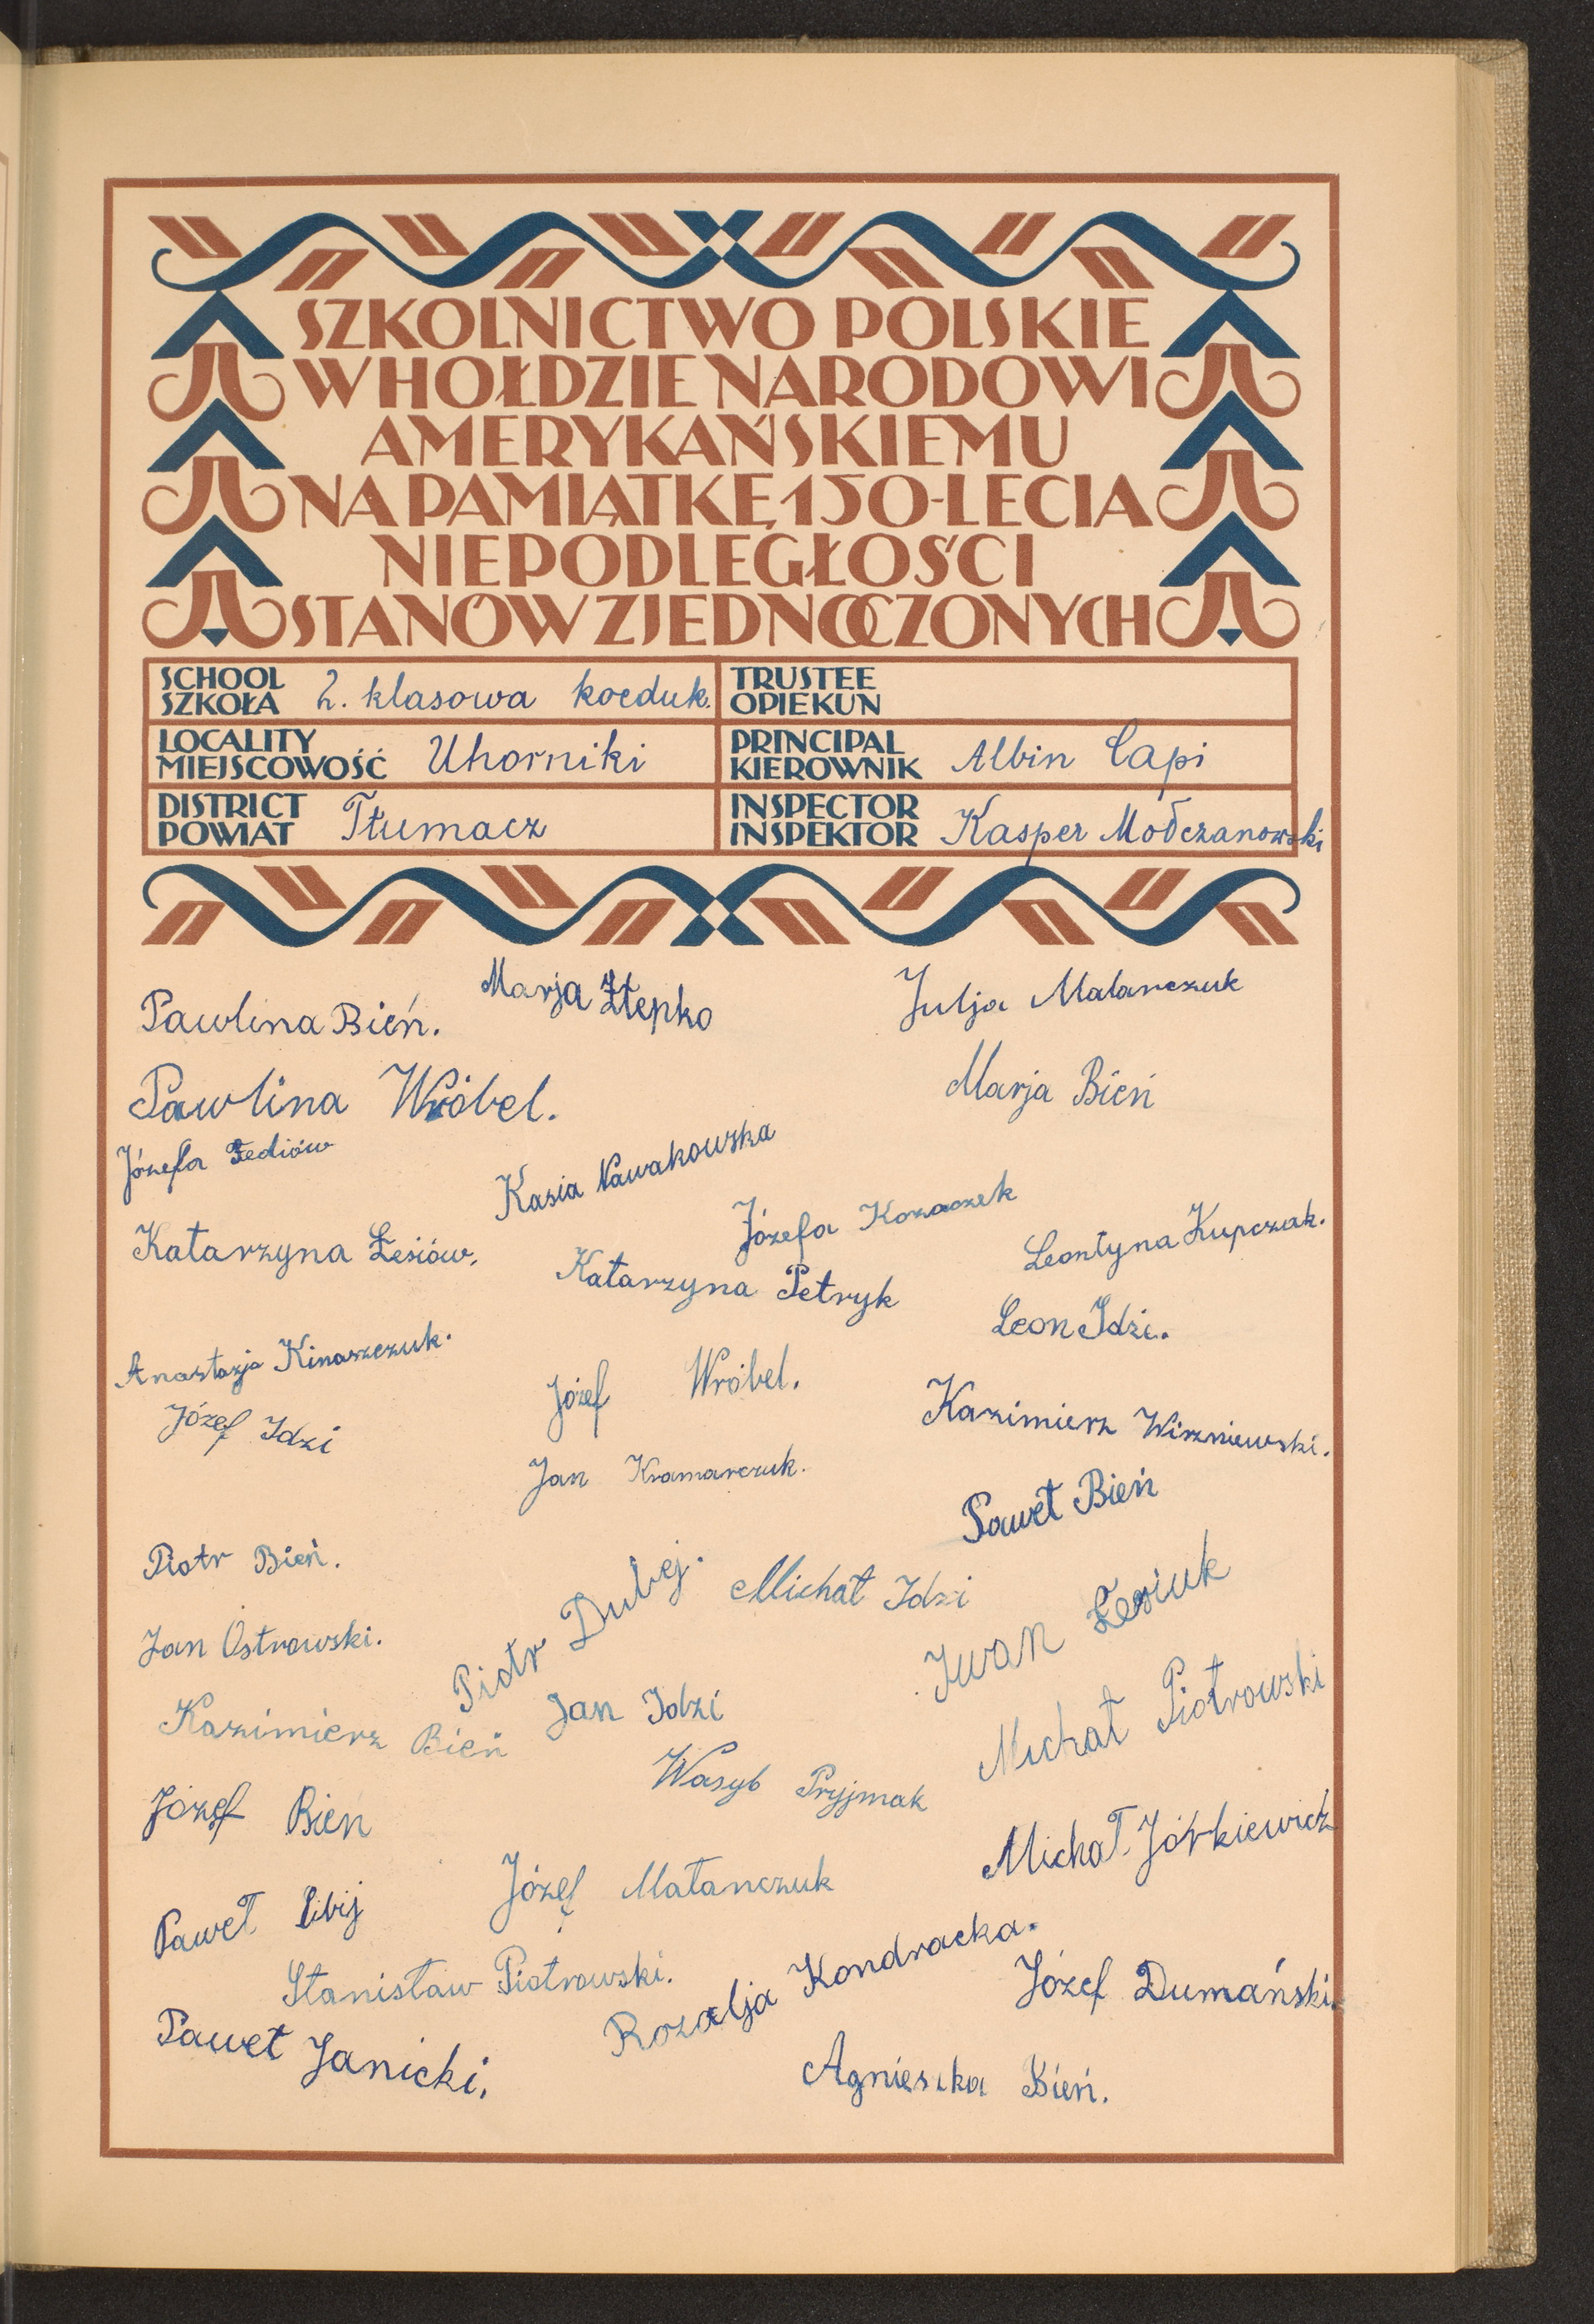 SZKOLNICTWO POLSKIE
W HOŁDZIE NARODOWI
AMERYKAŃSKIEMU
NA PAMIĄTKĘ 150-LECIA
NIEPODLEGŁOŚCI
STANÓW ZJEDNOCZONYCH
SCHOOL
SZKOŁA 2. klasowa koeduk.
TRUSTEE
OPIEKUN
LOCALITY
MIEJSCOWOŚĆ Uhorniki
PRINCIPAL
KIEROWNIK Albin Capi
DISTRICT
POWIAT Tłumacz
INSPECTOR
INSPEKTOR Kasper Mołczanowski
Pawlina Bień.
Marja
Julja Malarczuk
Pawlina Wróbel.
Marja Bień
Józefa Fediów
Kasia Nawakowska
Józefa Kozaczek
Katarzyna Łesiów.
Katarzyna Petryk
Leontyna Kupczak.
Leon Idzi.
Anastazja Kinaszczuk.
Józef Idzi
Józef Wróbel.
Kazimierz Wiszniewski.
Jan Kramarczuk.
Paweł Bień
Piotr Bień.
Piotr Dubej.
Michał Idzi
Iwan Łesiuk
Jan Ostrowski.
Jan Idzi
Kazimierz Bień
Michał Piotrowski
Wasyb Pryjmak
Józef Bień
Michał Jórkiewicz
Józef Małanczuk
Paweł
Stanisław Piotrowski.
Rozalja Kondracka.
Józef Dumański.
Paweł Janicki.
Agnieszka Bień.